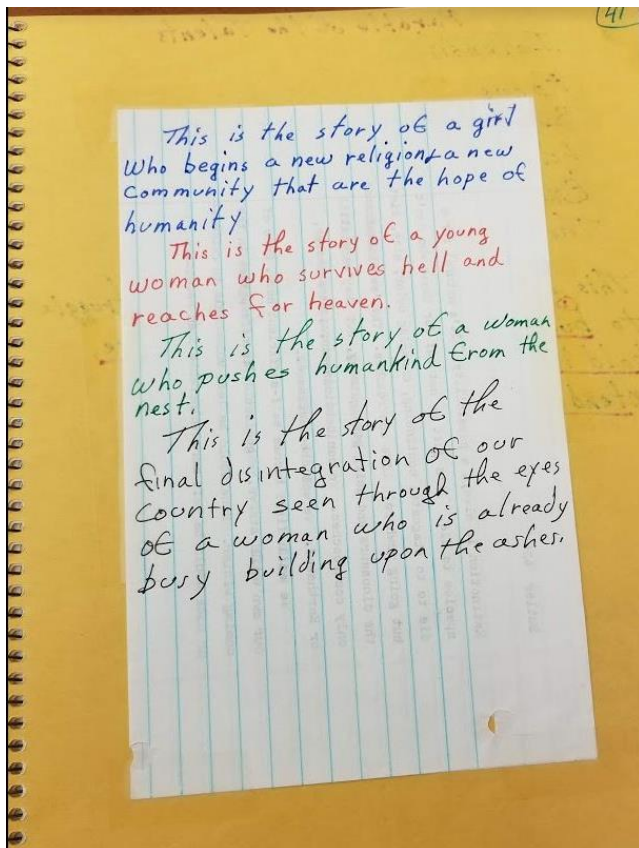 41
This is the story of a girl
who begins a new religion & a new
community that are the hope of
humanity
This is the story of a young
woman who survives hell and
reaches for heaven.
This is the story of a woman
who pushes humankind from the
nest.
This is the story of the
final disintegration of our
country seen through the eyes
of a woman who is already
busy building upon the ashes.